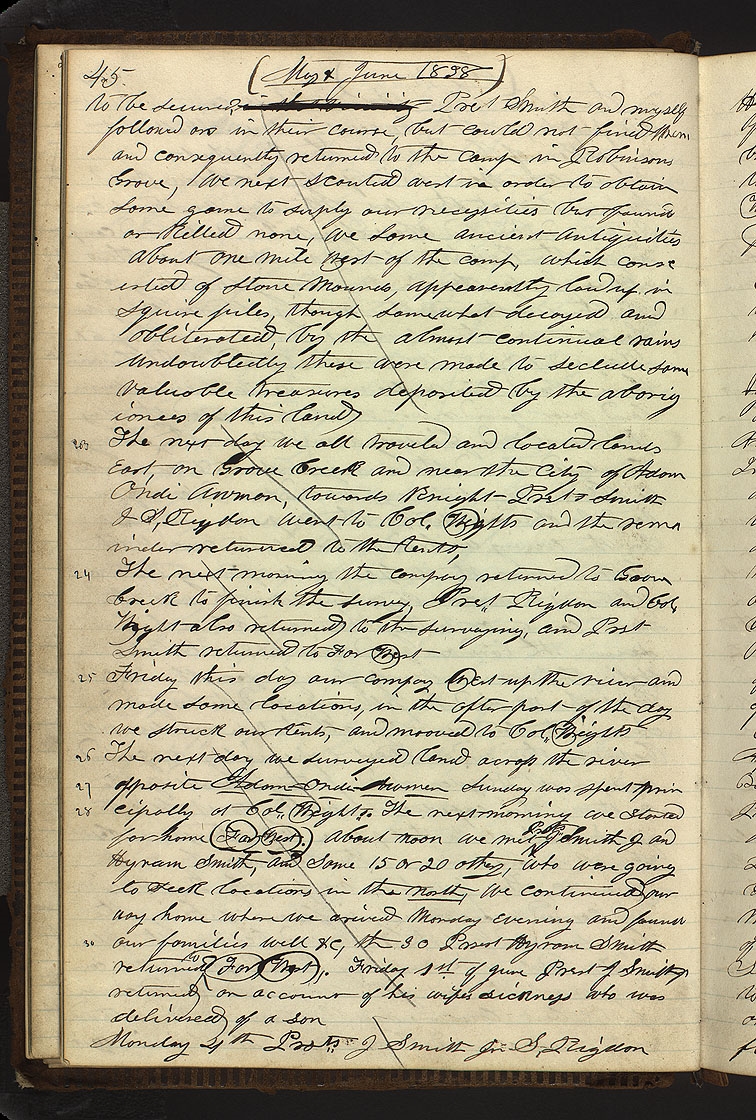 45
(May & June 1838)
to be secured, in the vicinity Prest Smith and myself
followd on in their course, but could not find them
and consequently returned to the camp in Robinsons
Grove, We next scouted west in order to obtain
some game to suply our necessities but found
or killed none, we some ancient antiquities
about one mile West of the camp, which cons
isted of stone mounds, appearently laid up in
squire piles, though somewhat decayed and
obliterated, by the almost continual rains
Undoubtedly these were made to seclude some
valuable treasures deposited by the aborig
ionees of this land
23 The next day we all traveled and located lands
East, on Grove Creek and near the City of Adam
Ondi Awmon, towards Knight Prest Smith
& S, Rigdon went to Col. Wights and the rema
inder returned to the tents,
24 The next morning the company returned to Grove
Creek to finish the survey, Prest Rigdon and Col,
Wight also returned to the surveying, and Prst
Smith returned to Far West
25 Friday this day our company West up the river and
made some locations, in the after part of the day
we struck our tents, and mooved to Col. Wights
26 The next day we surveyed land across the river
27 opposite Adam-Ondi-Awmen Sunday was spent prin
28 cipally at Col. Wight's. The next morning we started
for home (Far West). About noon we met Prsts J Smith J an
Hyram Smith, and some 15 or 20 other, who were going
to seek locations in the North, We continued our
way home where we arived Monday evening and found
30 our families well &c, the 30 Presst Hyram Smith
returned to (Far West). Friday 1st of june Prest J Smith Jr
returned, on account of his wifes sickness who was
delivered of a son
Monday 4th Prsts J Smith Jr. S, Rigdon